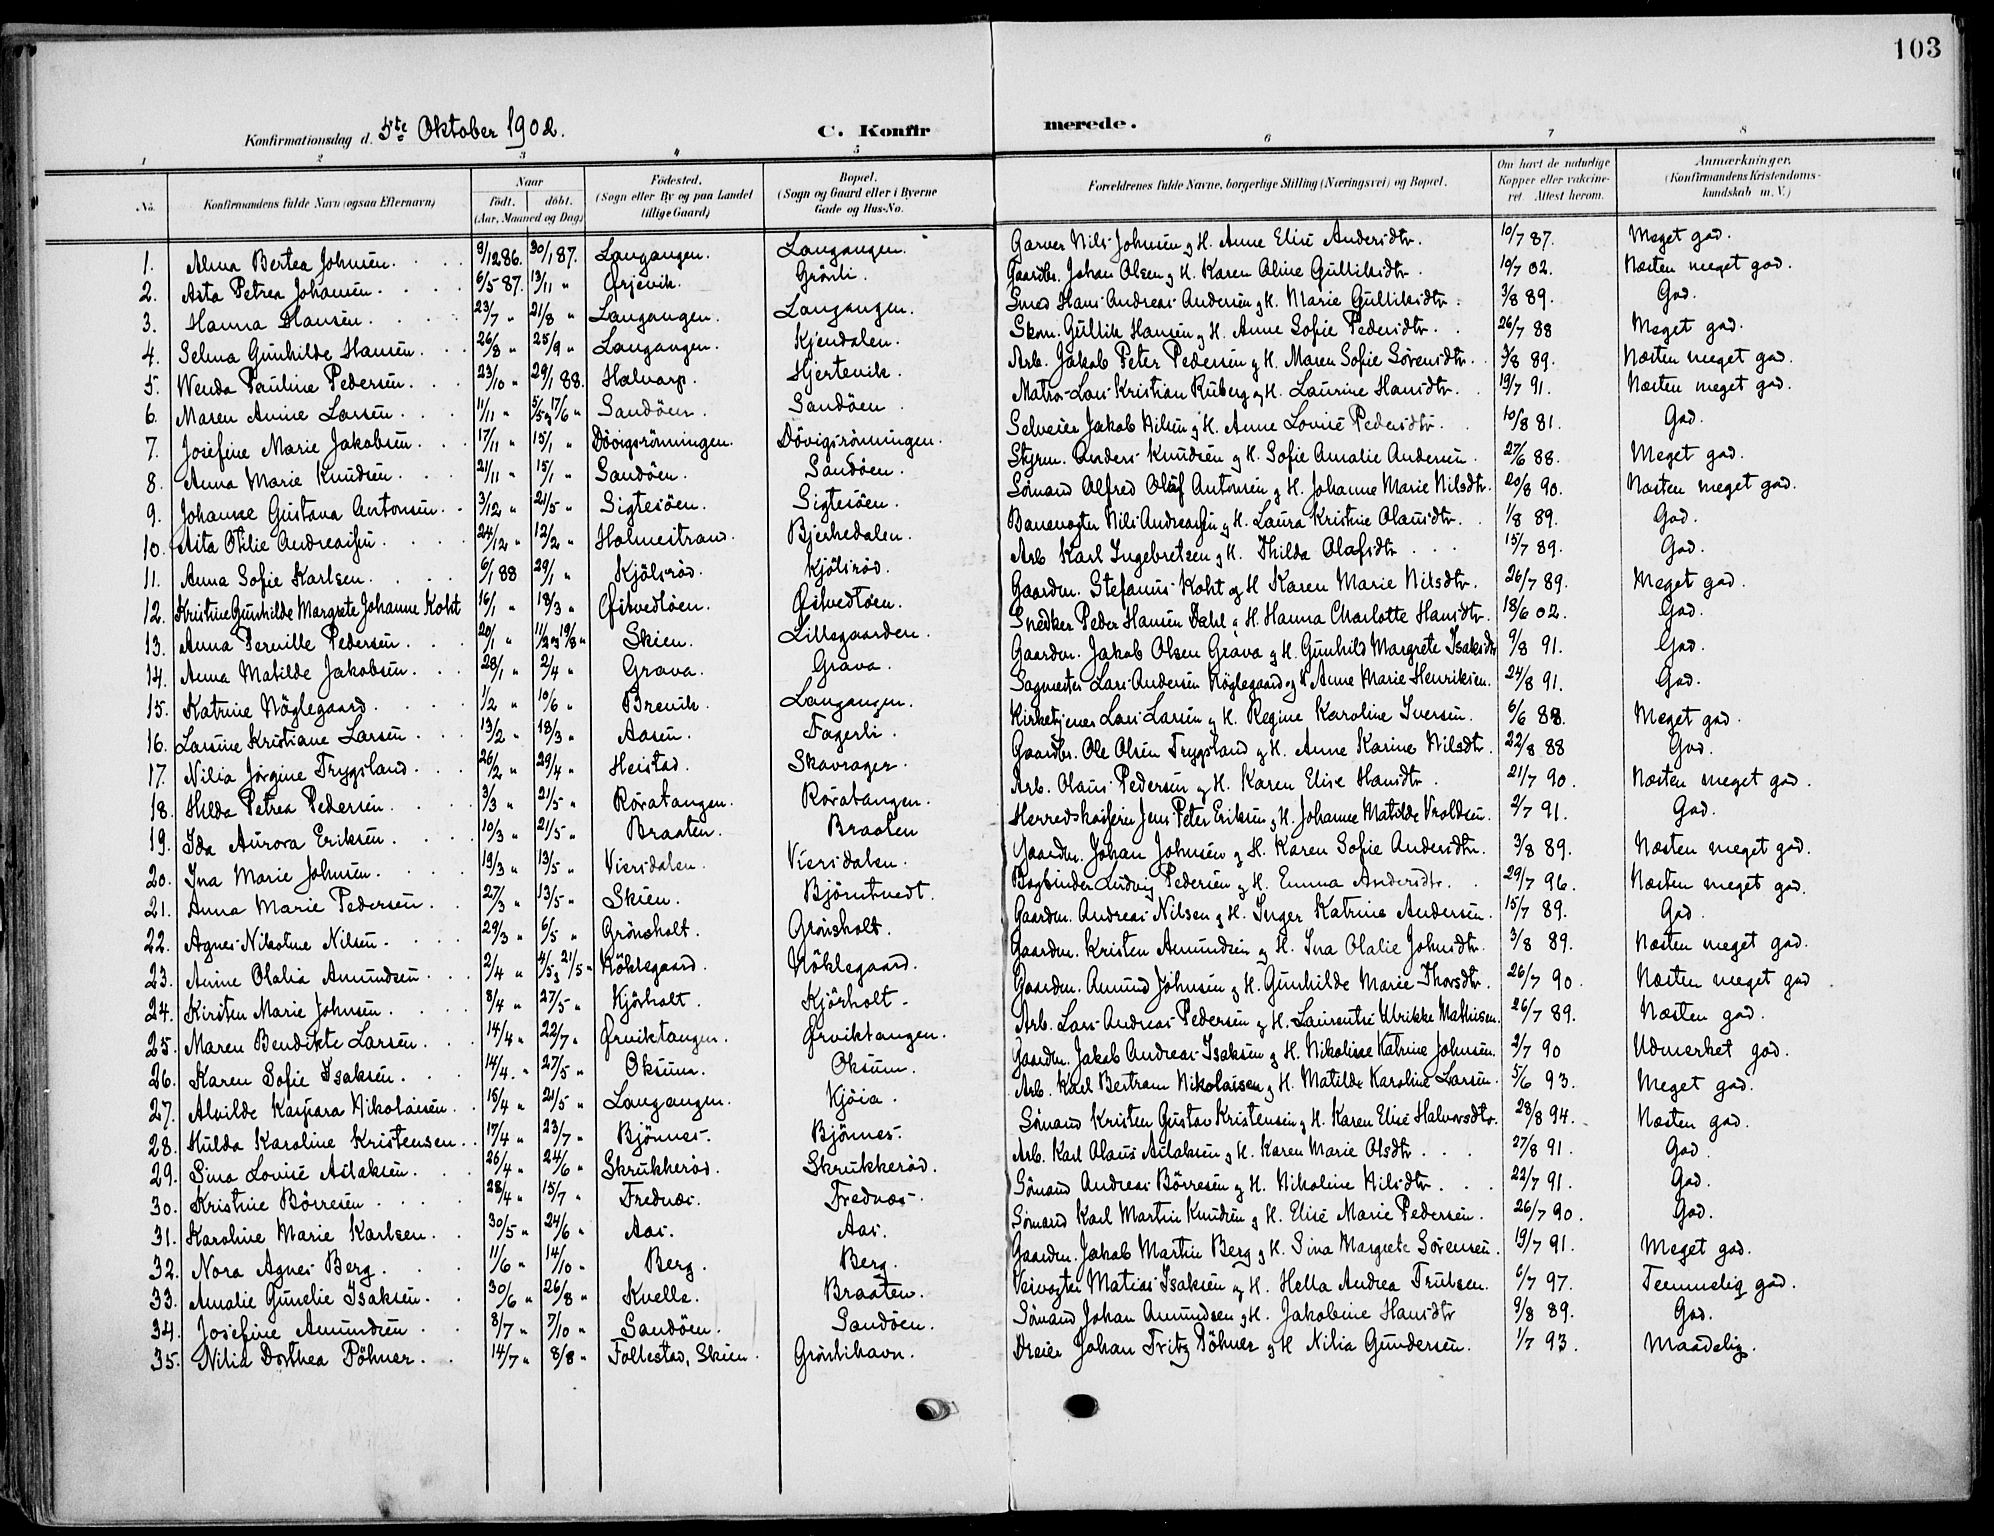 103
Konfirmationsdag d. 5te Oktober 1902. C. Konfirmerede.
1 2 3 4 5 6 7 8
No. Konfirmandens fulde Navn (ogsaa Efternavn) Naar født. døbt. (Aar, Maaned og Dag) Fødested. (Sogn eller By og paa Landet tillige Gaard) Bopæl. (Sogn og Gaard eller i Byerne Gade og Hus-No. Forældrenes fulde Navne, borgerlige Stilling (Næringsvei) og Bopæl. Om havt de naturlige Kopper eller vakcineret. Attest herom. Anmærkninger. (Konfirmandens Kristendomskundskab m. V.)
1. Alma Bertea Johnsen. 8/12 86. 30/1 87. Langangen. Langangen. Garver Nils Johnsen og H. Anne Elise Andersdtr. 10/7 87. Meget god.
2. Asta Petrea Johansen. 6/5 87. 13/11 " Ørjevik. Grönli. Gaardbr. Johan Olsen og H. Karen Oline Gulliksdtr. 10/7 02. Næsten meget god.
3. Hanna Hansen. 23/7 " 21/8 " Langangen. Langangen. Smed Hans Andreas Andersen og H. Marie Gulliksdtr. 3/8 89. God.
4. Selma Gunhilde Hansen. 26/8 " 25/9 " Langangen. Kjendalen. Skom. Gullik Hansen og H. Anne Sofie Pedersdtr. 26/7 88 Meget god.
5. Wenda Pauline Pedersen. 23/10 " 29/1 88. Halvarp. Hjertevik. Arb. Jakob Peter Pedersen og H. Maren Sofie Sörensdtr. 3/8 89. Næsten meget god.
6. Maren Anine Larsen. 11/11 " 5/5 og 17/6 " Sandöen. Sandöen. Matros Lars Kristian Ruberg og H. Laurine Hansdtr. 19/7 91. Næsten meget god.
7. Josefine Marie Jakobsen. 17/11 " 15/1 " Dövigsrönningen. Dövigsrönningen. Selveier Jakob Nilsen og H. Anne Lovise Pedersdtr. 10/8 81. God.
8. Anna Marie Knudsen. 21/11 " 15/1 " Sandöen. Sandöen. Styrm. Anders Knudsen og H. Sofie Amalie Andersen. 27/6 88. Meget god.
9. Johanne Gustava Antonsen. 3/12 " 21/5 " Sigtesöen. Sigtesöen. Sömand Alfred Olaf Antonsen og H. Johanne Marie Nilsdtr. 20/8 90. Næsten meget god.
10. Asta Otilie Andreassen. 24/12 " 12/2 " Holmestrand. Bjerkedalen. Banevogter Nils Andreassen og H. Laura Kristine Olausdtr. 1/8 89. God.
11. Anna Sofie Karlsen. 6/1 88 29/1 " Kjölsröd. Kjölsröd. Arb. Karl Ingebretsen og H. Thilda Olafsdtr. 15/7 89. God.
12. Kristine Gunhilde Margrete Johanne Koht 16/1 " 18/3 " Østvedtöen. Østvedtöen. Gaardm. Stefanus Koht og H. Karen Marie Nilsdtr. 26/7 89. Meget god.
13. Anna Pernille Pedersen. 20/1 " 11/2 og 19/8 " Skien. Lillegaarden. Snedker Peder Hansen Dahl og H. Hanna Charlotte Hansdtr. 18/6 02. God.
14. Anna Matilde Jakobsen. 28/1 " 2/4 " Grava. Grava. Gaardm. Jakob Olsen Grava og H. Gunhild Margrete Isaksdtr. 9/8 91. God.
15. Katrine Nöglegaard. 1/2 " 10/6 " Brevik. Langangen. Sagmester Lars Andersen Nöglegaard og H. Anne Marie Henriksen. 24/8 91. God.
16. Larsine Kristiane Larsen. 13/2 " 18/3 " Aasen. Fagerli. Kirketjener Lars Larsen og H. Regine Karoline Iversen. 6/6 88. Meget god.
17. Nilia Jörgine Trygsland. 26/2 " 29/4 " Heistad. Skavrager. Gaardbr. Ole Olsen Trygsland og H. Anne Karine Nilsdtr. 22/8 88 God.
18. Hilda Petrea Pedersen. 3/3 " 21/5 " Röratangen. Röratangen. Arb. Olaus Pedersen og H. Karen Elise Hansdtr. 21/7 90. Næsten meget god.
19. Ida Aurora Eriksen. 10/3 " 21/5 " Braaten. Braaten Herredskasserer Jens Peter Eriksen og H. Johanne Matilde Vroldsen. 2/7 91. God.
20. Ina Marie Johnsen. 19/3 " 13/5 " Viersdalen. Viersdalen. Gaardm. Johan Johnsen og H. Karen Sofie Andersdtr. 3/8 89. Næsten meget god.
21. Anna Marie Pedersen. 27/3 " 13/5 " Skien. Björntvedt. Bogbinder Ludvig Pedersen og H. Emma Andersdtr. 29/7 96. Næsten meget god.
22. Agnes Nikoline Nilsen. 29/3 " 6/5 " Grönsholt. Grönsholt. Gaardm. Andreas Nilsen og H. Inger Katrine Andersen. 15/7 89. God.
23. Anine Olalia Amundsen. 2/4 " 4/5 og 21/5 " Nöklegaard. Nöklegaard. Gaardm. Kristen Amundsen og H. Ina Olalie Johnsdtr. 3/8 89. Næsten meget god.
24. Kirsten Marie Johnsen. 8/4 " 27/5 " Kjörholt. Kjörholt. Gaardm. Amund Johnsen og H. Gunhilde Marie Thorsdtr. 26/7 90. Næsten meget god
25. Maren Bendikte Larsen. 14/4 " 22/7 " Ørviktangen. Ørviktangen. Arb. Lars Andreas Pedersen og H. Laurentse Ulrikke Mathisen. 26/7 89. Næsten god.
26. Karen Sofie Isaksen. 14/4. " 27/5 " Oksum. Oksum. Gaardm. Jakob Andreas Isaksen og H. Nikoline Katrine Johnsen. 2/7 90 Udmerket god.
27. Alvilde Kaspara Nikolaisen. 15/4 " 21/5 " Langangen. Kjöia. Arb. Karl Bertram Nikolaisen og H. Matilde Karoline Larsen. 5/6 93. Meget god.
28. Hulda Karoline Kristensen. 17/4 " 23/7 " Björnes. Björnes. Sömand Kristen Gustav Kristensen og H. Karen Elise Halvorsdtr. 28/8 94. Næsten god.
29. Sina Lovise Aslaksen. 26/4 " 24/6 " Skrukkeröd. Skrukkeröd. Arb. Karl Olaus Aslaksen og H. Karen Marie Olsdtr. 27/8 91. God.
30. Kristine Börresen. 28/4 " 15/7 " Frednæs. Frednæs. Sömand Andreas Börresen og H. Nikoline Nilsdtr. 22/7 91. God.
31. Karoline Marie Karlsen. 30/5 " 24/6 " Aas. Aas. Sömand Karl Martin Knudsen og H. Elise Marie Pedersen. 26/7 90. God.
32. Nora Agnes Berg. 11/6 " 14/10 " Berg. Berg. Gaardm. Jakob Martin Berg og H. Sina Margrete Sörensen. 19/7 91. Meget god.
33. Amalie Gunelie Isaksen. 30/6 " 26/8 " Kvelle. Braaten. Veivogter Matias Isaksen og H. Hella Andrea Trulsen. 6/7 97. Temmelig god.
34. Josefine Amundsen. 8/7 " 7/10 " Sandöen. Sandöen. Sömand Johan Amundsen og H. Jakobine Hansdtr 9/8 89. God.
35. Nilia Dorthea Pöhner. 14/7 " 8/8 " Follestad, Skien. Grönlihavn. Dreier Johan Fritz Pöhner og H. Nilia Gundersen. 1/7 93. Maadelig.